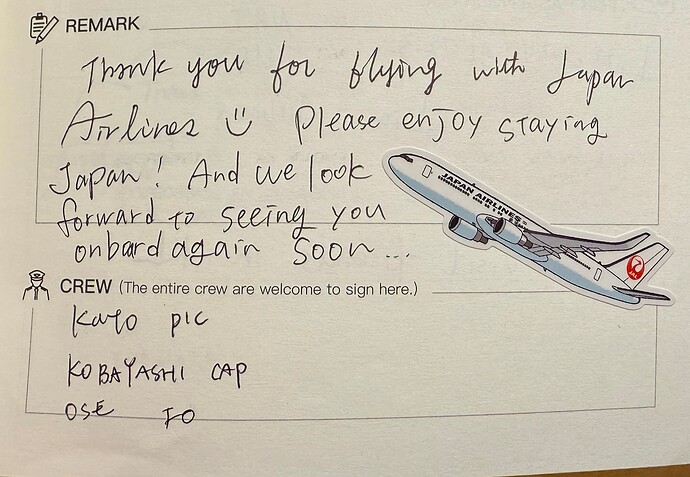 REMARK
Thank you for flying with Japan
Airlines Please enjoy staying
Japan! And we look
forward to seeing you
onbard again soon...
JAPAN AIRLINES
JAL
CREW (The entire crew are welcome to sign here.)
Kato PIC
KOBAYASHI CAP
OSE FO